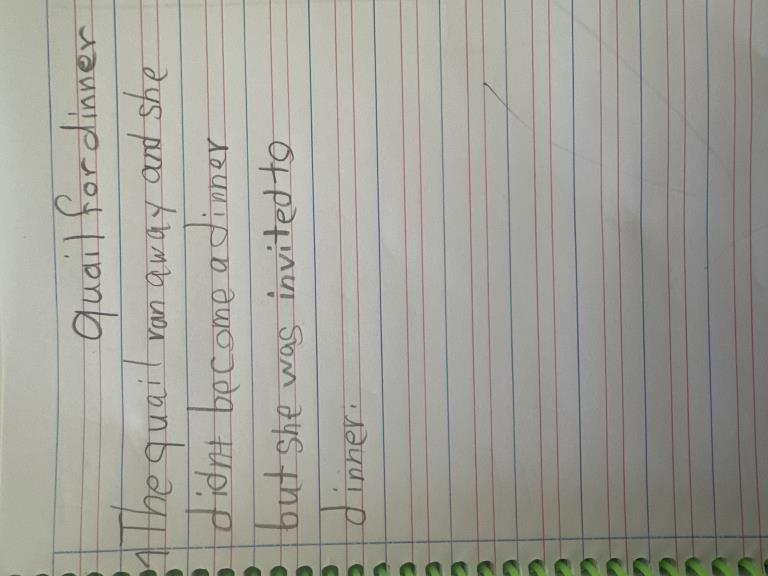 quail for dinner
1 The quail ran away and she
didnt become a dinner
but she was invited to
dinner.